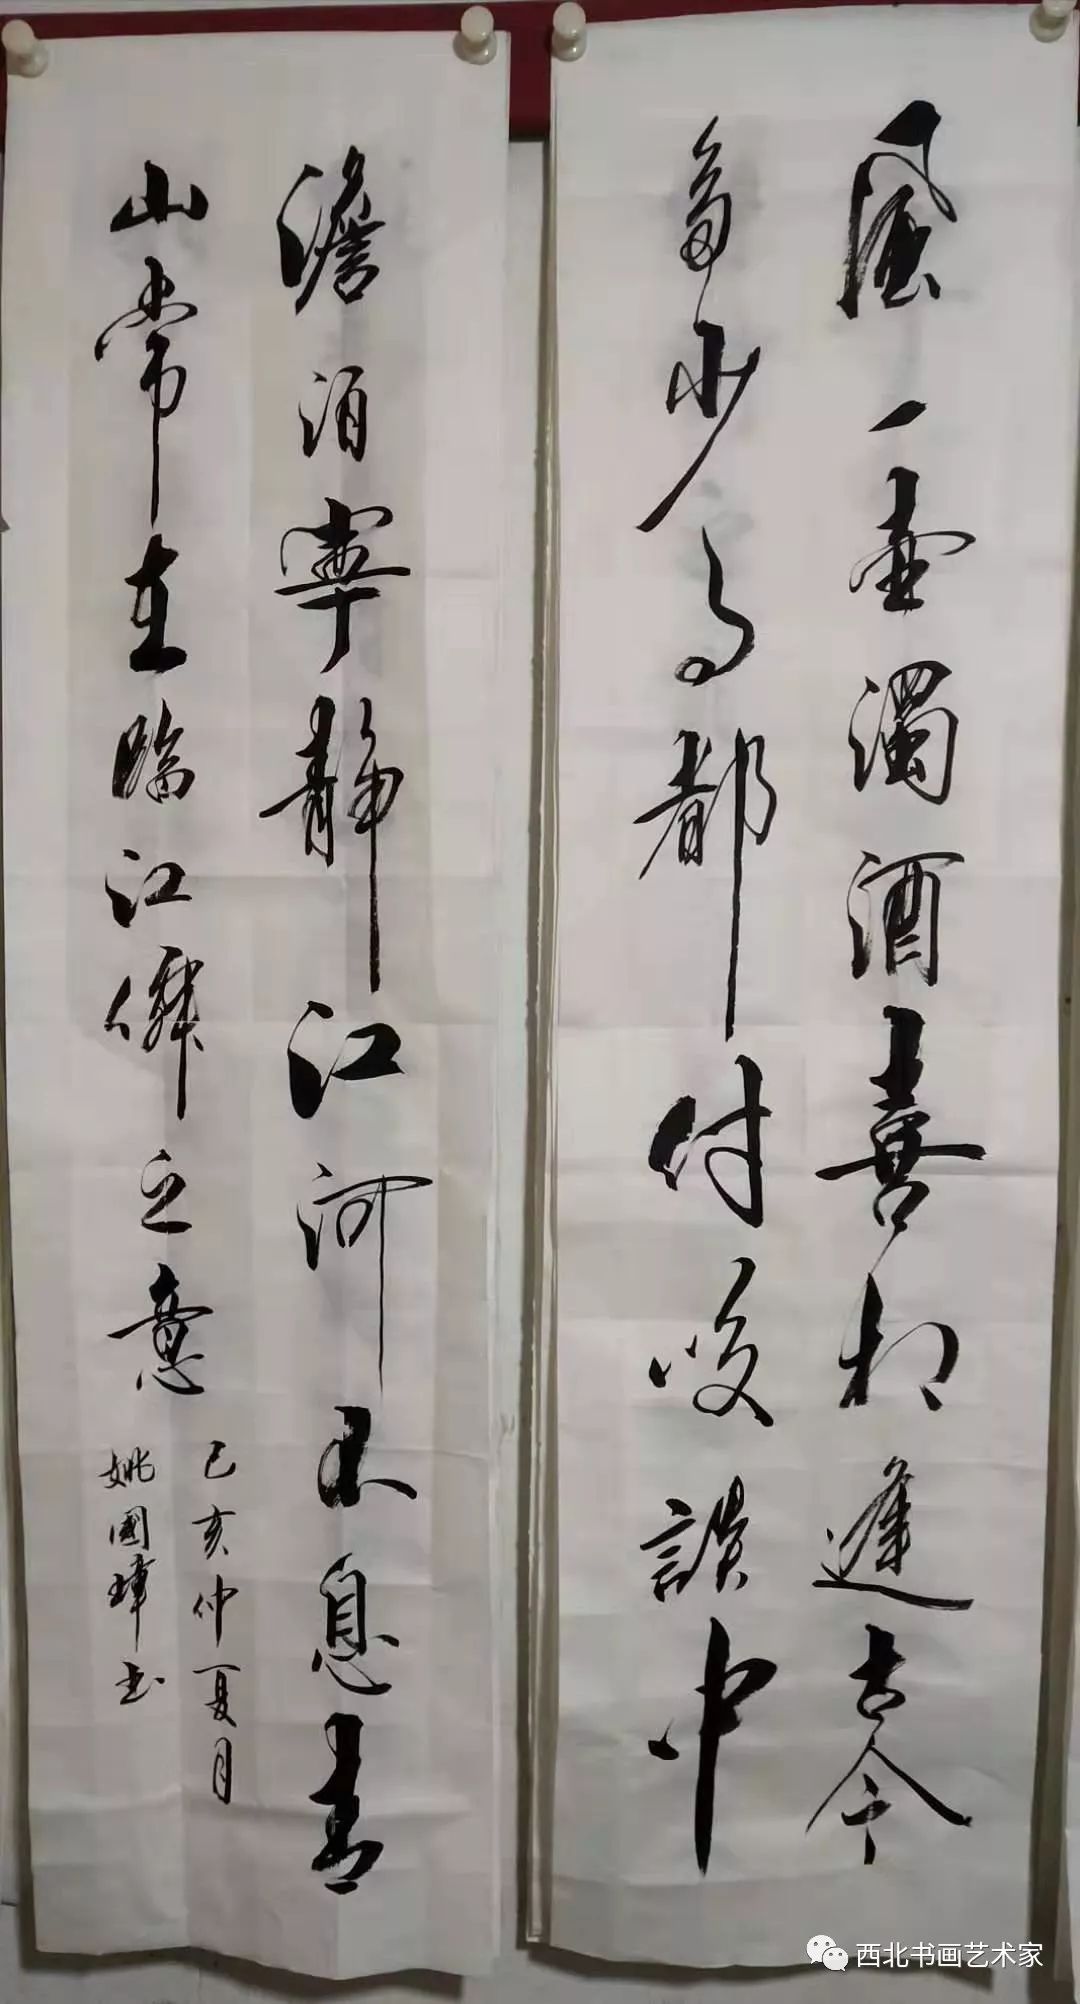 風一壺濁酒喜相逢古今
多少事都付笑談中
澹泊寧靜江河不息青
山常在臨江僊之意
己亥仲夏月
姚國瑋书
西北书画艺术家